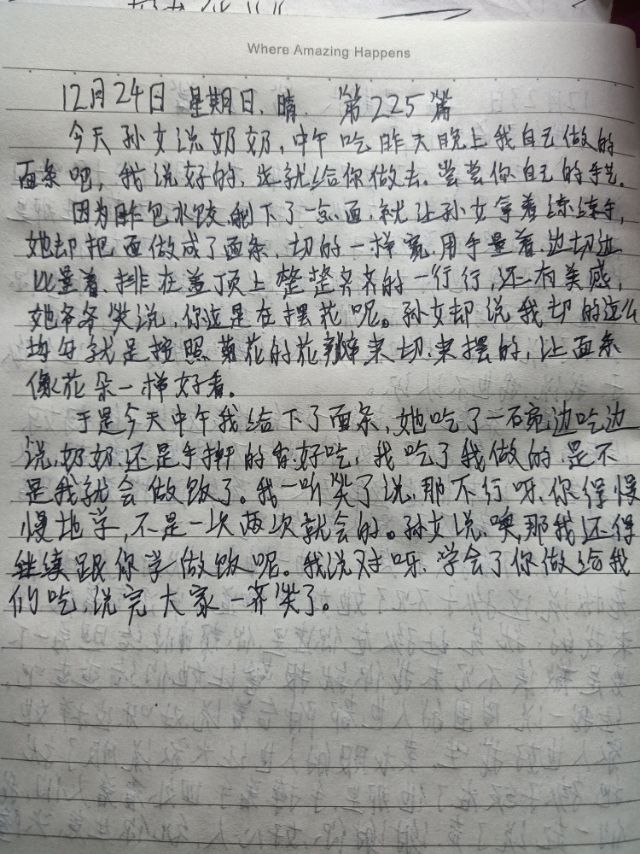 Where Amazing Happens
12月24日 星期日、晴、 第225篇
今天孙女说奶奶,中午吃昨天晚上我自己做的
面条吧,我说好的,这就给你做去。尝尝你自己的手艺。
因为昨包水饺剩下了一点面,就让孙女拿着练练手,
她却把面做成了面条,切的一样宽,用手量着、边切边
比量着、排在盖顶上整整齐齐的一行行,还有美感,
她爷爷笑说,你这是在摆花呢。孙女却说我切的这么
均匀就是按照菊花的花瓣来切、来摆的,让面条
像花朵一样好看。
于是今天中午我给下了面条,她吃了一碗边吃边
说,奶奶、还是手擀的面好吃,我吃了我做的,是不
是我就会做饭了。我一听笑了说,那不行呀、你得慢
慢地学,不是一次两次就会的。孙女说、噢那我还得
继续跟你学做饭呢。我说对呀、学会了你做给我
们吃,说完大家一齐笑了。